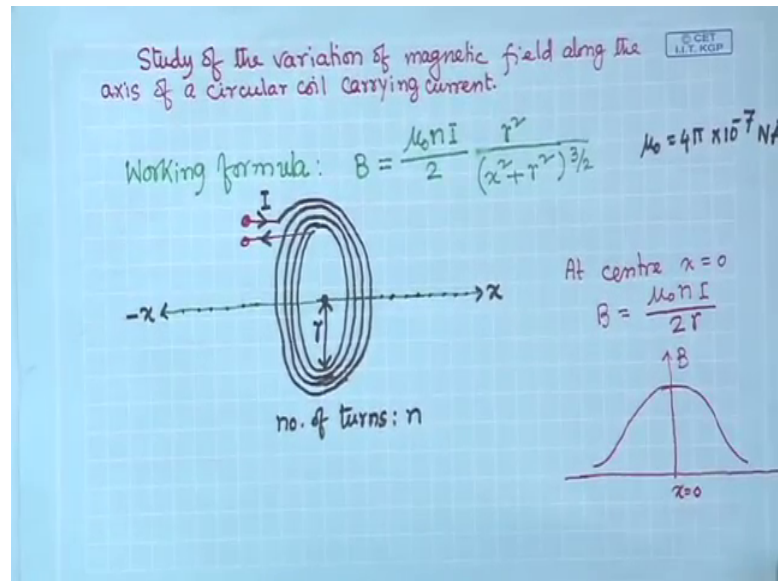 Study of the variation of magnetic field along the
axis of a circular coil carrying current.
© CET
I.I.T. KGP
Working formula: B = μ₀nI/2 r²/(x²+r²)^3/2
μ₀ = 4π × 10⁻⁷ N
I
-x
x
r
no. of turns: n
At centre x=0
B = μ₀nI/2r
B
x=0